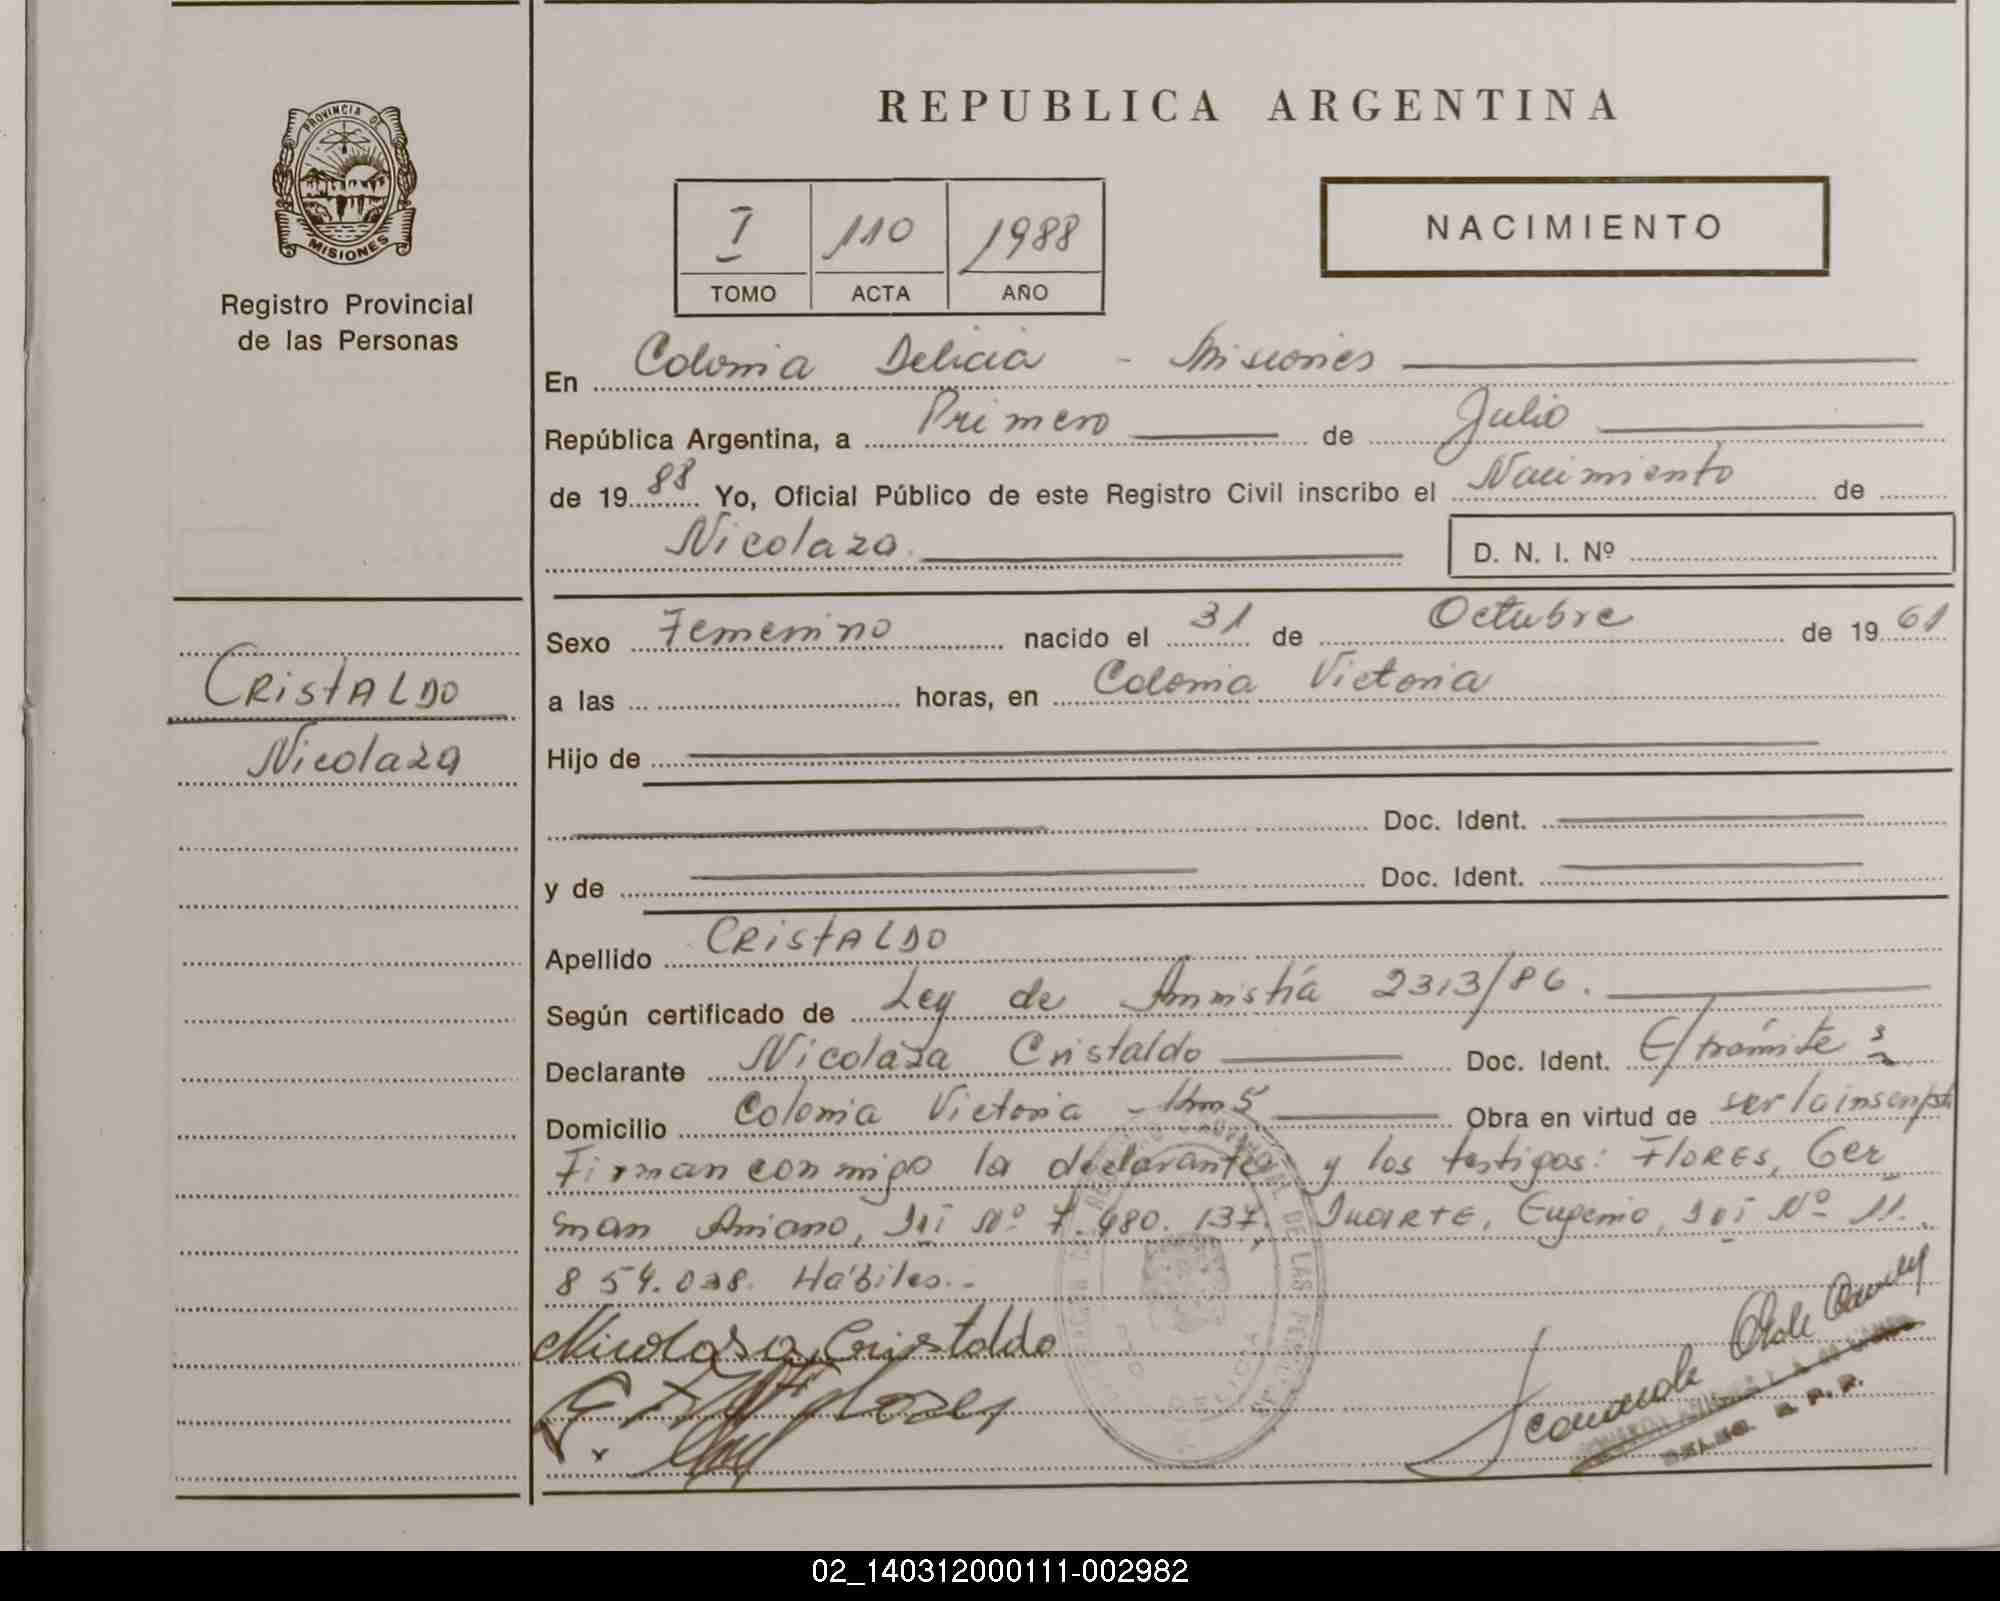 REPUBLICA ARGENTINA
PROVINCIA DE
MISIONES
Registro Provincial
de las Personas
I 110 1988
TOMO ACTA AÑO
NACIMIENTO
En Colonia Delicia - Misiones
República Argentina, a Primero de Julio
de 19 88 Yo, Oficial Público de este Registro Civil inscribo el Nacimiento de
Nicolaza. D. N. I. Nº
CRISTALDO
Nicolaza
Sexo Femenino nacido el 31 de Octubre de 19 61
a las horas, en Colonia Victoria
Hijo de
Doc. Ident.
y de Doc. Ident.
Apellido CRISTALDO
Según certificado de Ley de Amnistía 2313/86.
Declarante Nicolaza Cristaldo Doc. Ident. E/trámite
Domicilio Colonia Victoria - Km 5 Obra en virtud de ser la inscripta
Firman conmigo la declarante y los testigos: FLORES, Ger
man Aniano, DNI Nº 7.480.137, DUARTE, Eugenio, DNI Nº 11.
854.038. Hábiles.-
Nicolasa Cristaldo
Flores
02_140312000111-002982